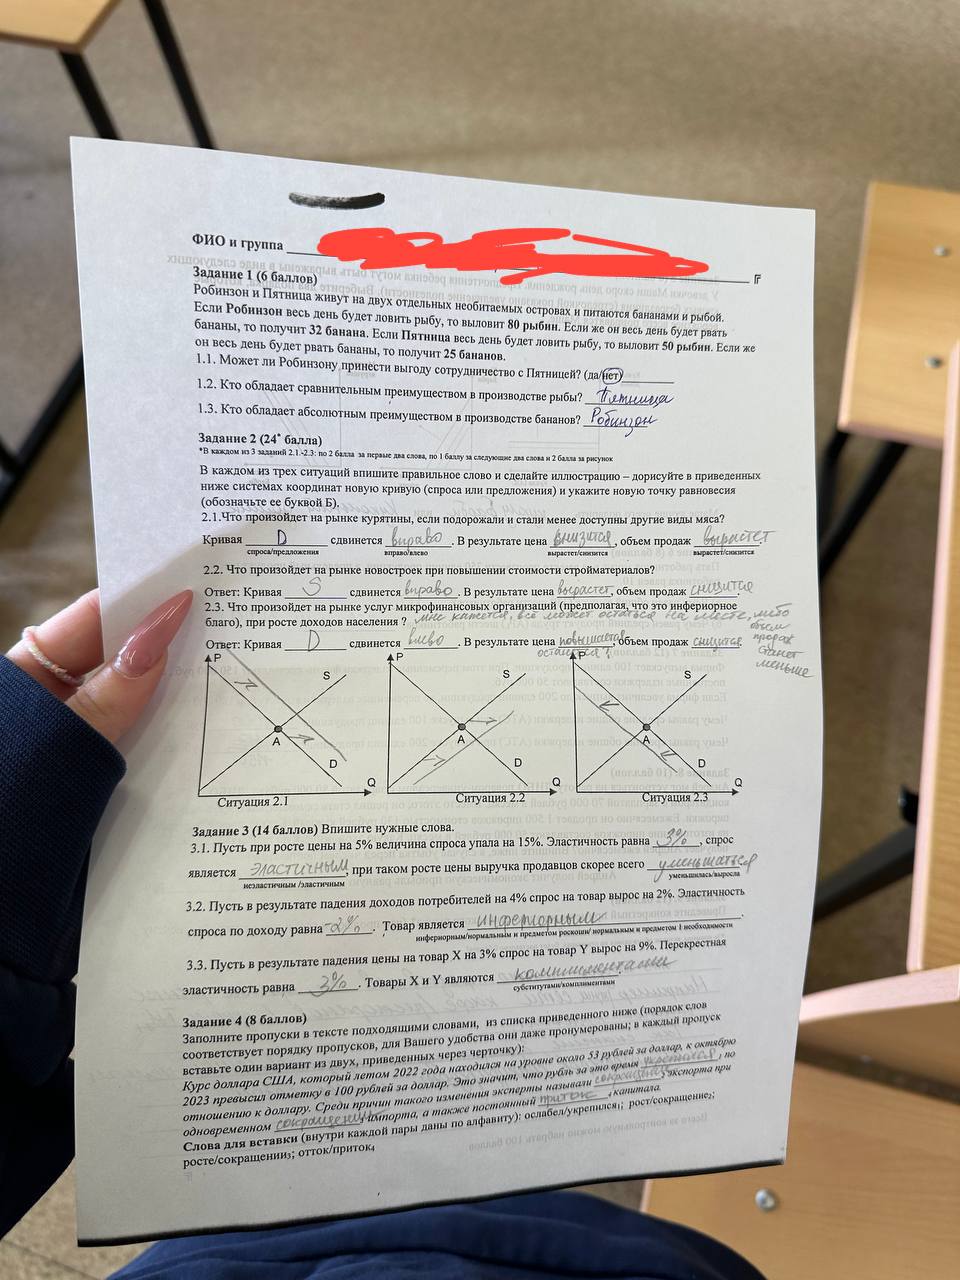 ФИО и группа
Задание 1 (6 баллов)
Робинзон и Пятница живут на двух отдельных необитаемых островах и питаются бананами и рыбой.
Если Робинзон весь день будет ловить рыбу, то выловит 80 рыбин. Если же он весь день будет рвать
бананы, то получит 32 банана. Если Пятница весь день будет ловить рыбу, то выловит 50 рыбин. Если же
он весь день будет рвать бананы, то получит 25 бананов.
1.1. Может ли Робинзону принести выгоду сотрудничество с Пятницей? (да/нет)
1.2. Кто обладает сравнительным преимуществом в производстве рыбы? Пятница
1.3. Кто обладает абсолютным преимуществом в производстве бананов? Робинзон
Задание 2 (24* балла)
*В каждом из 3 заданий 2.1.-2.3: по 2 балла за первые два слова, по 1 баллу за следующие два слова и 2 балла за рисунок
В каждом из трех ситуаций впишите правильное слово и сделайте иллюстрацию – дорисуйте в приведенных
ниже системах координат новую кривую (спроса или предложения) и укажите новую точку равновесия
(обозначьте ее буквой Б).
2.1.Что произойдет на рынке курятины, если подорожали и стали менее доступны другие виды мяса?
Кривая D сдвинется вправо. В результате цена снизится, объем продаж вырастет.
спроса/предложения вправо/влево вырастет/снизится вырастет/снизится
2.2. Что произойдет на рынке новостроек при повышении стоимости стройматериалов?
Ответ: Кривая S сдвинется вправо. В результате цена вырастет, объем продаж снизится
2.3. Что произойдет на рынке услуг микрофинансовых организаций (предполагая, что это инфериорное
благо), при росте доходов населения ? мне кажется, всё может остаться на месте, либо
объем продаж станет меньше
Ответ: Кривая D сдвинется влево. В результате цена повышается, объем продаж снизится.
останется ?
P S A D Q
P S A D Q
P S A D
Ситуация 2.1 Ситуация 2.2 Ситуация 2.3
Задание 3 (14 баллов) Впишите нужные слова.
3.1. Пусть при росте цены на 5% величина спроса упала на 15%. Эластичность равна 3%, спрос
является эластичным, при таком росте цены выручка продавцов скорее всего уменьшаться
неэластичным /эластичным уменьшилась/выросла
3.2. Пусть в результате падения доходов потребителей на 4% спрос на товар вырос на 2%. Эластичность
спроса по доходу равна -2%. Товар является инфериорным.
инфериорным/нормальным и предметом роскоши/ нормальным и предметом 1 необходимости
3.3. Пусть в результате падения цены на товар X на 3% спрос на товар Y вырос на 9%. Перекрестная
эластичность равна 3%. Товары X и Y являются комплиментами
субститутами/комплиментами
Задание 4 (8 баллов)
Заполните пропуски в тексте подходящими словами, из списка приведенного ниже (порядок слов
соответствует порядку пропусков, для Вашего удобства они даже пронумерованы; в каждый пропуск
вставьте один вариант из двух, приведенных через черточку):
Курс доллара США, который летом 2022 года находился на уровне около 53 рублей за доллар, к октябрю
2023 превысил отметку в 100 рублей за доллар. Это значит, что рубль за это время укрепился1 по
отношению к доллару. Среди причин такого изменения эксперты называли сокращение2 экспорта при
одновременном сокращении3 импорта, а также постоянный приток4 капитала.
Слова для вставки (внутри каждой пары даны по алфавиту): ослабел/укрепился1; рост/сокращение2;
росте/сокращении3; отток/приток4